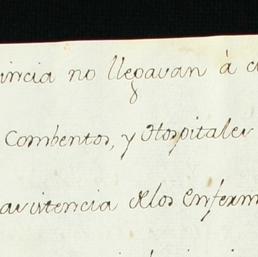 incia no llegavan à c
Combentos, y Hospitales
asistencia delos Enferm